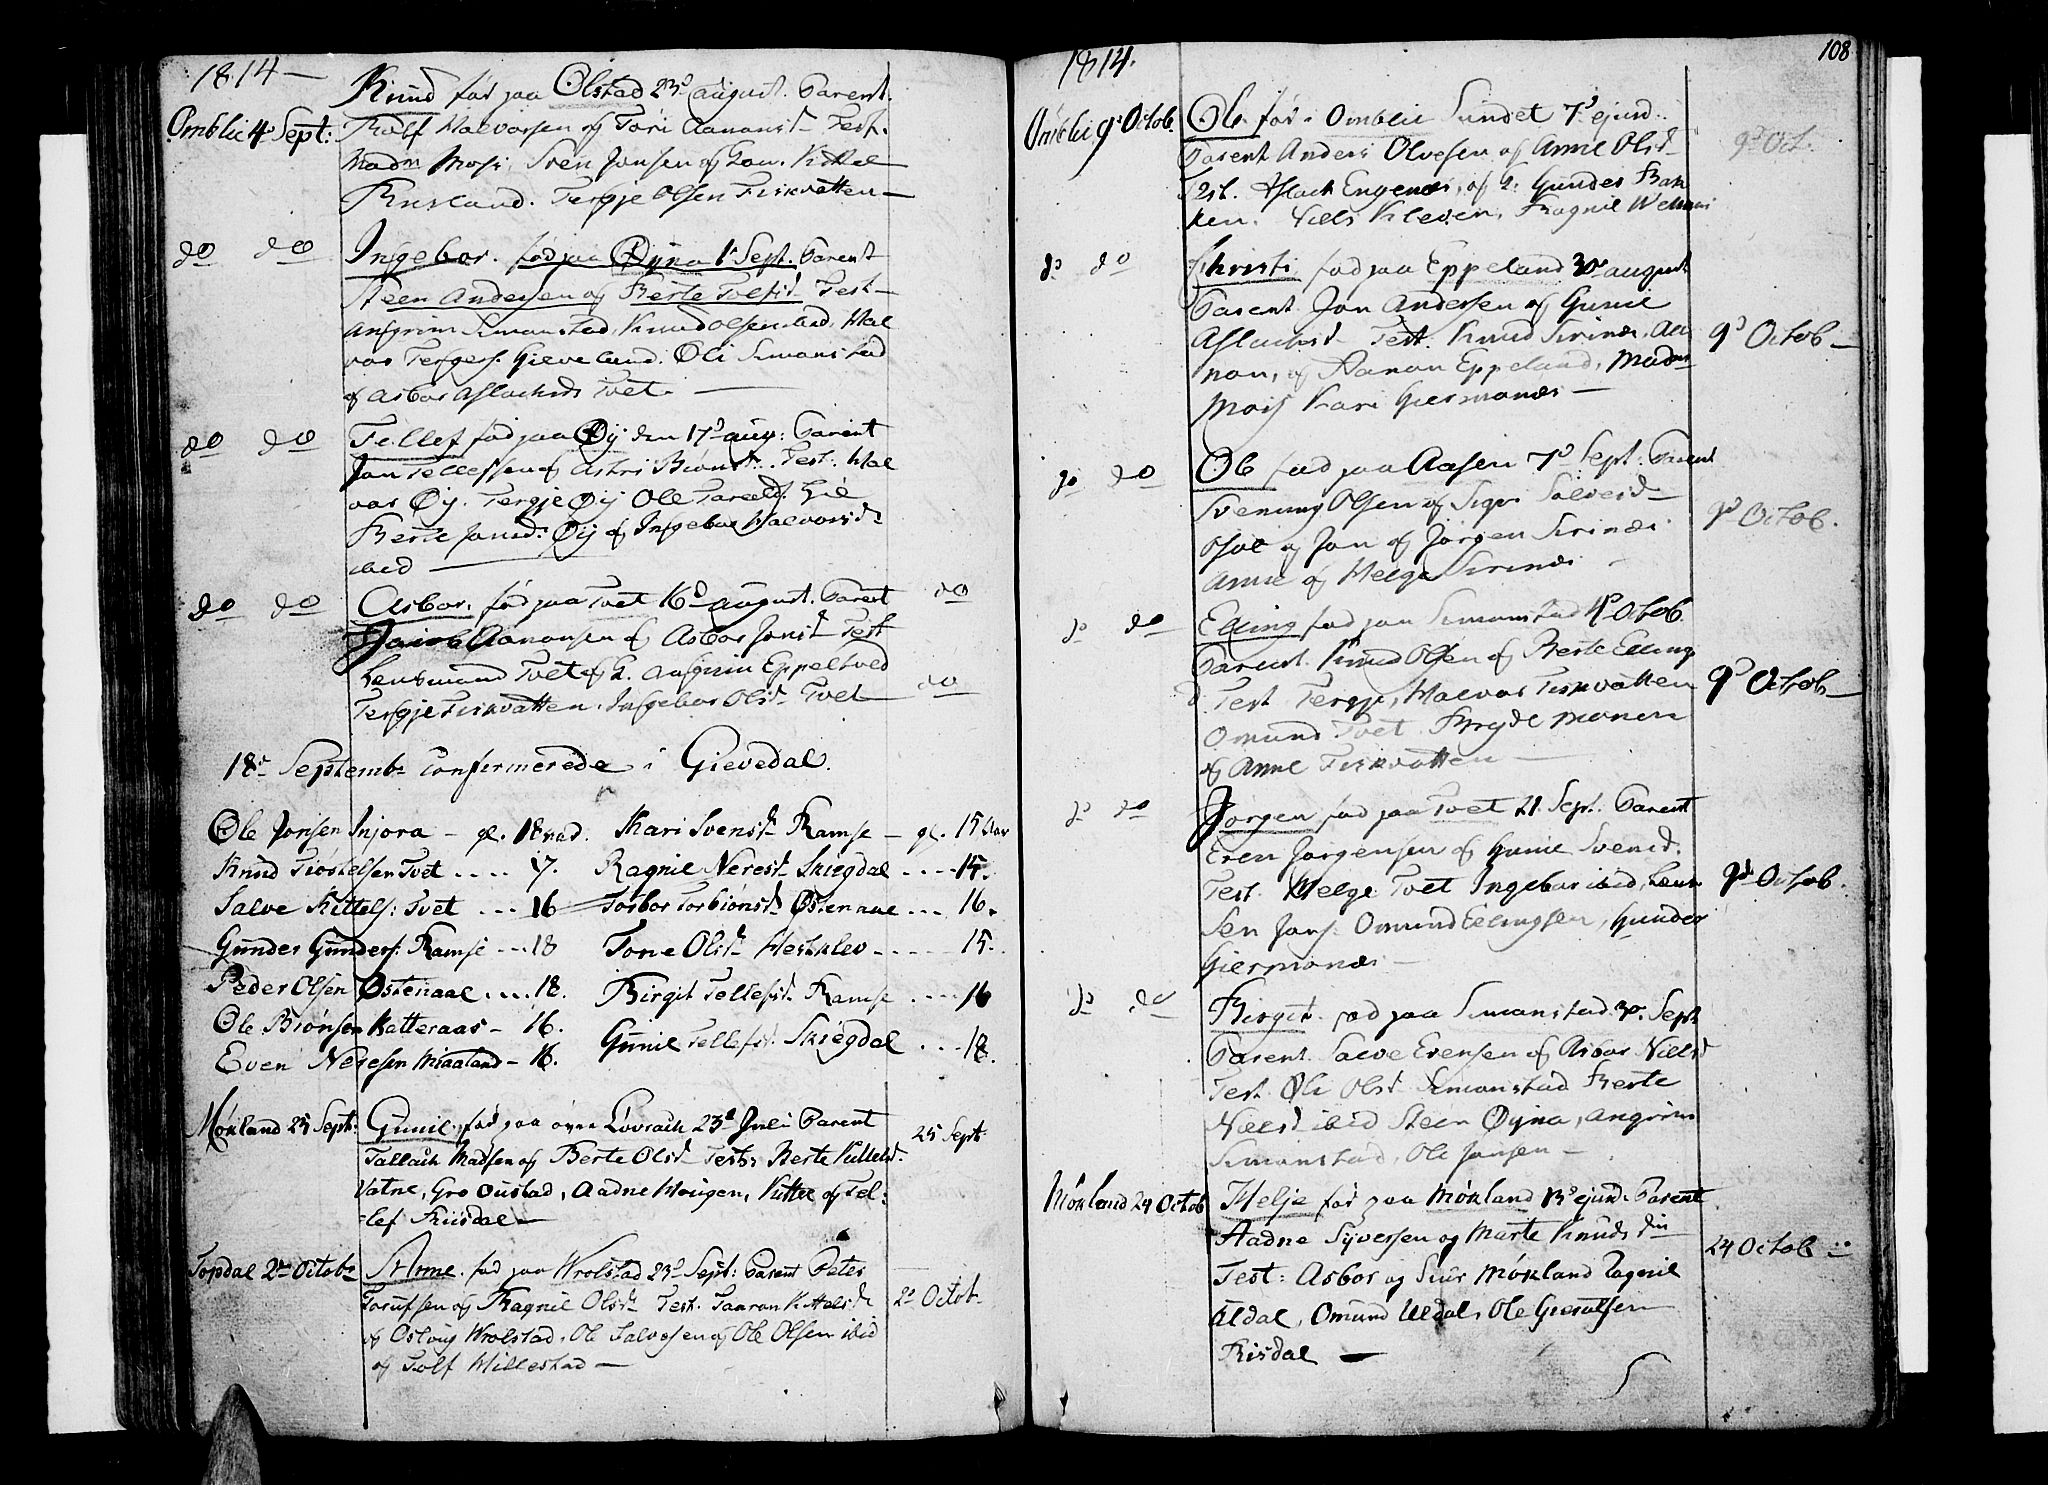 1814 —
Omblie 4 Sept:
Knud fød paa Ølstad 23d august. Parent.
Rolf Halvorsen og Tori Aanonsd Test.
Madm Mosi, Sven Jonsen og Kittel
Risland. Tergje Olsen Fiskvatten —
do do
Ingebor. fød paa Øyna 1 Sept. Parent
Steen Andersen og Berte Tolfsd Test —
Ansgrim Simonstad, Knud Olsen ibid, Hal
vor Tergers. Gieveland. Oli Simonstad
og Asbor Aslachsd Tvet. —
do do
Tellef fød paa Øij den 17d aug: Parent
Jon Tellefsen og Astri Biønsd. Test: Hal
vor Øij. Tergje Øij Ole
Berte Jonsd: Øij og Ingebor Halvorsd
ibid —
do do
Asbor. fød paa Tvet 16d august. Parent do
Aanonsen og Asbor Jonsd Test
Lensmand Tvet og Ansgrim Eppeltved
Tergje Fiskvatten. Ingebor Olsd Tvet do
18d Septembr Confermerede i Gievedal.
Ole Jonsen Injora — gl. 18 aad. Kari Svensd Ramse — gl. 15 Aar
Knud Tiøstelsen Tvet .... 17. Ragnil Neresd Skiegdal .... 15.
Salve Kittels: Tvet ... 16 Torbor Torbiønsd Østenaae ... 16.
Gunder Gunders: Ramse ... 18 Tone Olsd Heskleo ..... 15.
Peder Olsen Østenaae .... 18. Birgit Tellefsd Ramse .... 16
Ole Biønsen Katteraas — 16. Gunil Tellefsd Skiegdal ... 18.
Even Neresen Miaaland — 16.
Møkland 25 Sept:
Gunil. fød paa øvre Løvraek 23d Juli Parent 25 Sept
Tallach Madsen og Berte Olsd Test: Berte Kittelsd.
Vatne, Gro Oustad, Aadne Hougen, Kittel og Tel:
lef Risdal —
Topdal 2den Octobr
Anne. fød paa Wrolstad 23d Sept: Parent Peter
Torufsen og Ragnil Olsd Test. Taaran Kittelsd 2d Octob.
og Oslaug Wrolstad. Ole Salvesen og Ole Olsen ibid
og Tolf Hillestad —
1814.
108
Omblie 9d Octob.
Ole fød i Omblie Sundet 7d ejusd. 9d Oct.
Parent Anders Olvesen og Anne Olsd
Test. Aslach Engenes, og Gunder Bak
ken. Niels Kleven, Ragnil
do do
Christi fød paa Eppeland 30 august
Parent. Jon Andersen og Gunil
Aslachsd Test. Knud Sirines, Aa 9d Octob —
non, og Aanon Eppeland, Madm
Mois Kari Giermones —
do do
Ole fød paa Aasen 7d Sept: Parent
Svenung Olsen og Sigri Salvesd 9d Octob.
og Jon og Jørgen Sirines
Anne og Helge Sirines —
do do
Elling fød paa Simonstad 4d Octob.
Parent. Knud Olsen og Berte Elling
d Test Tergje, Halvor Fiskvatten 9d Octob —
Omund Tvet. Brgde Monen
og Anne Fiskvatten —
do do
Jørgen fød paa Tvet 21. Sept. Parent
Even Jørgensen og Gunil Svensd.
Test. Helge Tvet Ingebor ibid, Leur 9d Octob.
Sen Jons. Omund Ellingsen, Gunder
Giermones —
do do
Birgit. fød paa Simonstad 30. Sept
Parent. Salve Evensen og Asbor Nielsd
Test. Oli Olsd Simonstad Berte
Nielsd ibid Steen Øyna, Angrim
Simonstad, Ole Jonsen —
Møkland 24 Octob
Helje fød paa Møkland 13d ejusd. Parent
Aadne Syversen og Marte Knudsdn 24 Octob —
Test: Asbor og Siur Møkland Ragnil
Uldal, Omund Uldal, Ole Giersulsen
Risdal —